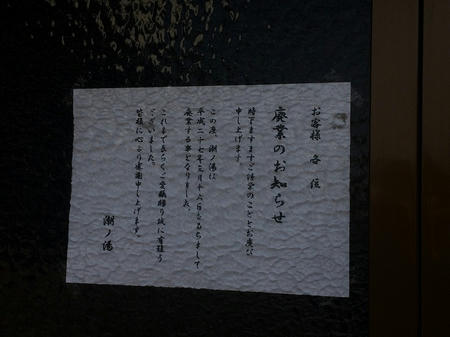 お客様 各位
廃業のお知らせ
時下ますますご清栄のこととお慶び
申し上げます。
この度、潮ノ湯は
平成二十七年三月十六日をもちまして
廃業する事となりました。
これまで長らくご愛顧賜り誠に有難う
ございました。
皆様に心より感謝申し上げます。
潮ノ湯